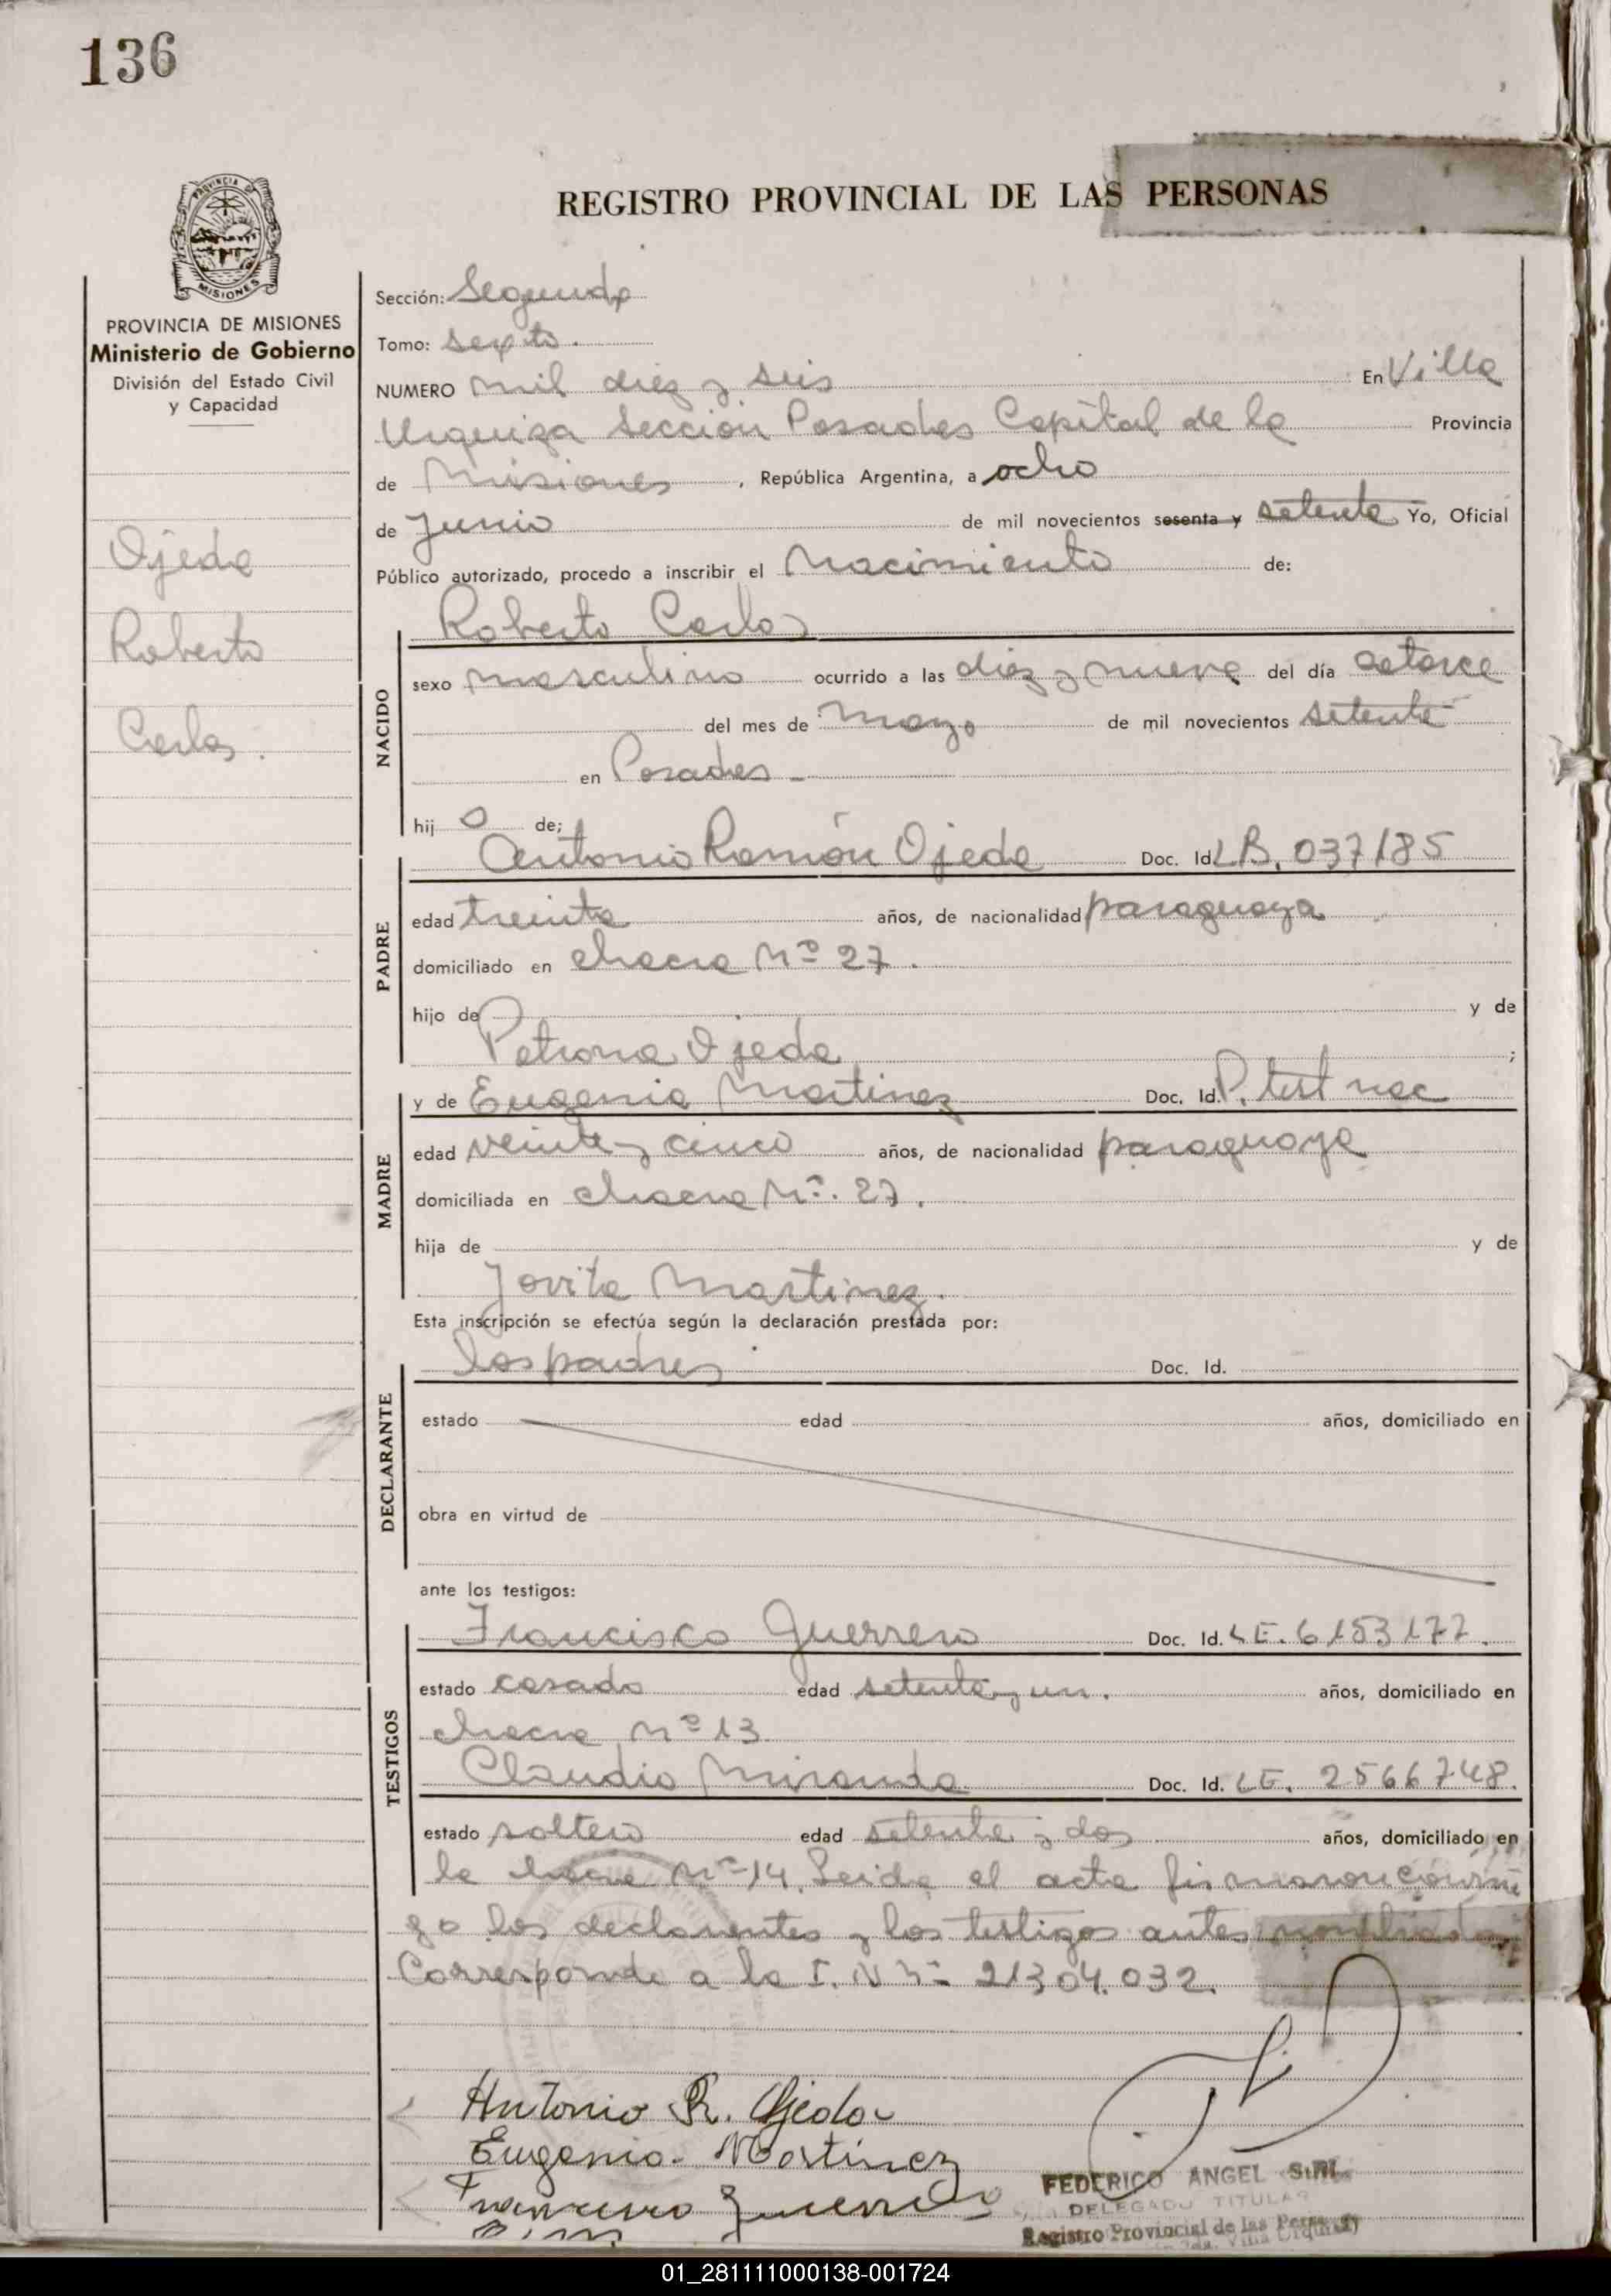 136
REGISTRO PROVINCIAL DE LAS PERSONAS
PROVINCIA DE MISIONES
Ministerio de Gobierno
División del Estado Civil
y Capacidad
Ojeda
Roberto
Carlos.
Sección: Segunda
Tomo: sexto.
NUMERO mil diez y seis En Villa
Urquiza Sección Posadas Capital de la Provincia
de Misiones, República Argentina, a ocho
de Junio de mil novecientos sesenta y setenta Yo, Oficial
Público autorizado, procedo a inscribir el Nacimiento de:
Roberto Carlos
NACIDO
sexo masculino ocurrido a las diez y nueve del día catorce
del mes de marzo de mil novecientos setenta
en Posadas -
hij o de;
Antonio Ramón Ojeda Doc. Id LB. 037185
PADRE
edad treinta años, de nacionalidad paraguaya
domiciliado en chacra Nº 27.
hijo de y de
Petrona Ojeda ;
y de Eugenia Martinez Doc. Id. P. test nac
MADRE
edad veinte y cinco años, de nacionalidad paraguaya
domiciliada en chacra Nº. 27.
hija de y de
Jovita Martinez.
Esta inscripción se efectúa según la declaración prestada por:
los padres Doc. Id.
DECLARANTE
estado edad años, domiciliado en
obra en virtud de
ante los testigos:
Francisco Guerrero Doc. Id. LE. 6153177.
TESTIGOS
estado casado edad setenta y un. años, domiciliado en
chacra Nº 13
Claudio Miranda Doc. Id. LE. 2566748.
estado soltero edad setenta y dos años, domiciliado en
la chacra Nº 14. Leida el acta firmaron conmi
go los declarantes y los testigos antes nombrados
Corresponde a la I. N Nº 21304.032.
Antonio R. Ojeda
Eugenia Martinez
Francisco Guerrero
FEDERICO ANGEL
DELEGADO TITULAR
Registro Provincial de las Personas
Villa Urquiza
01_281111000138-001724